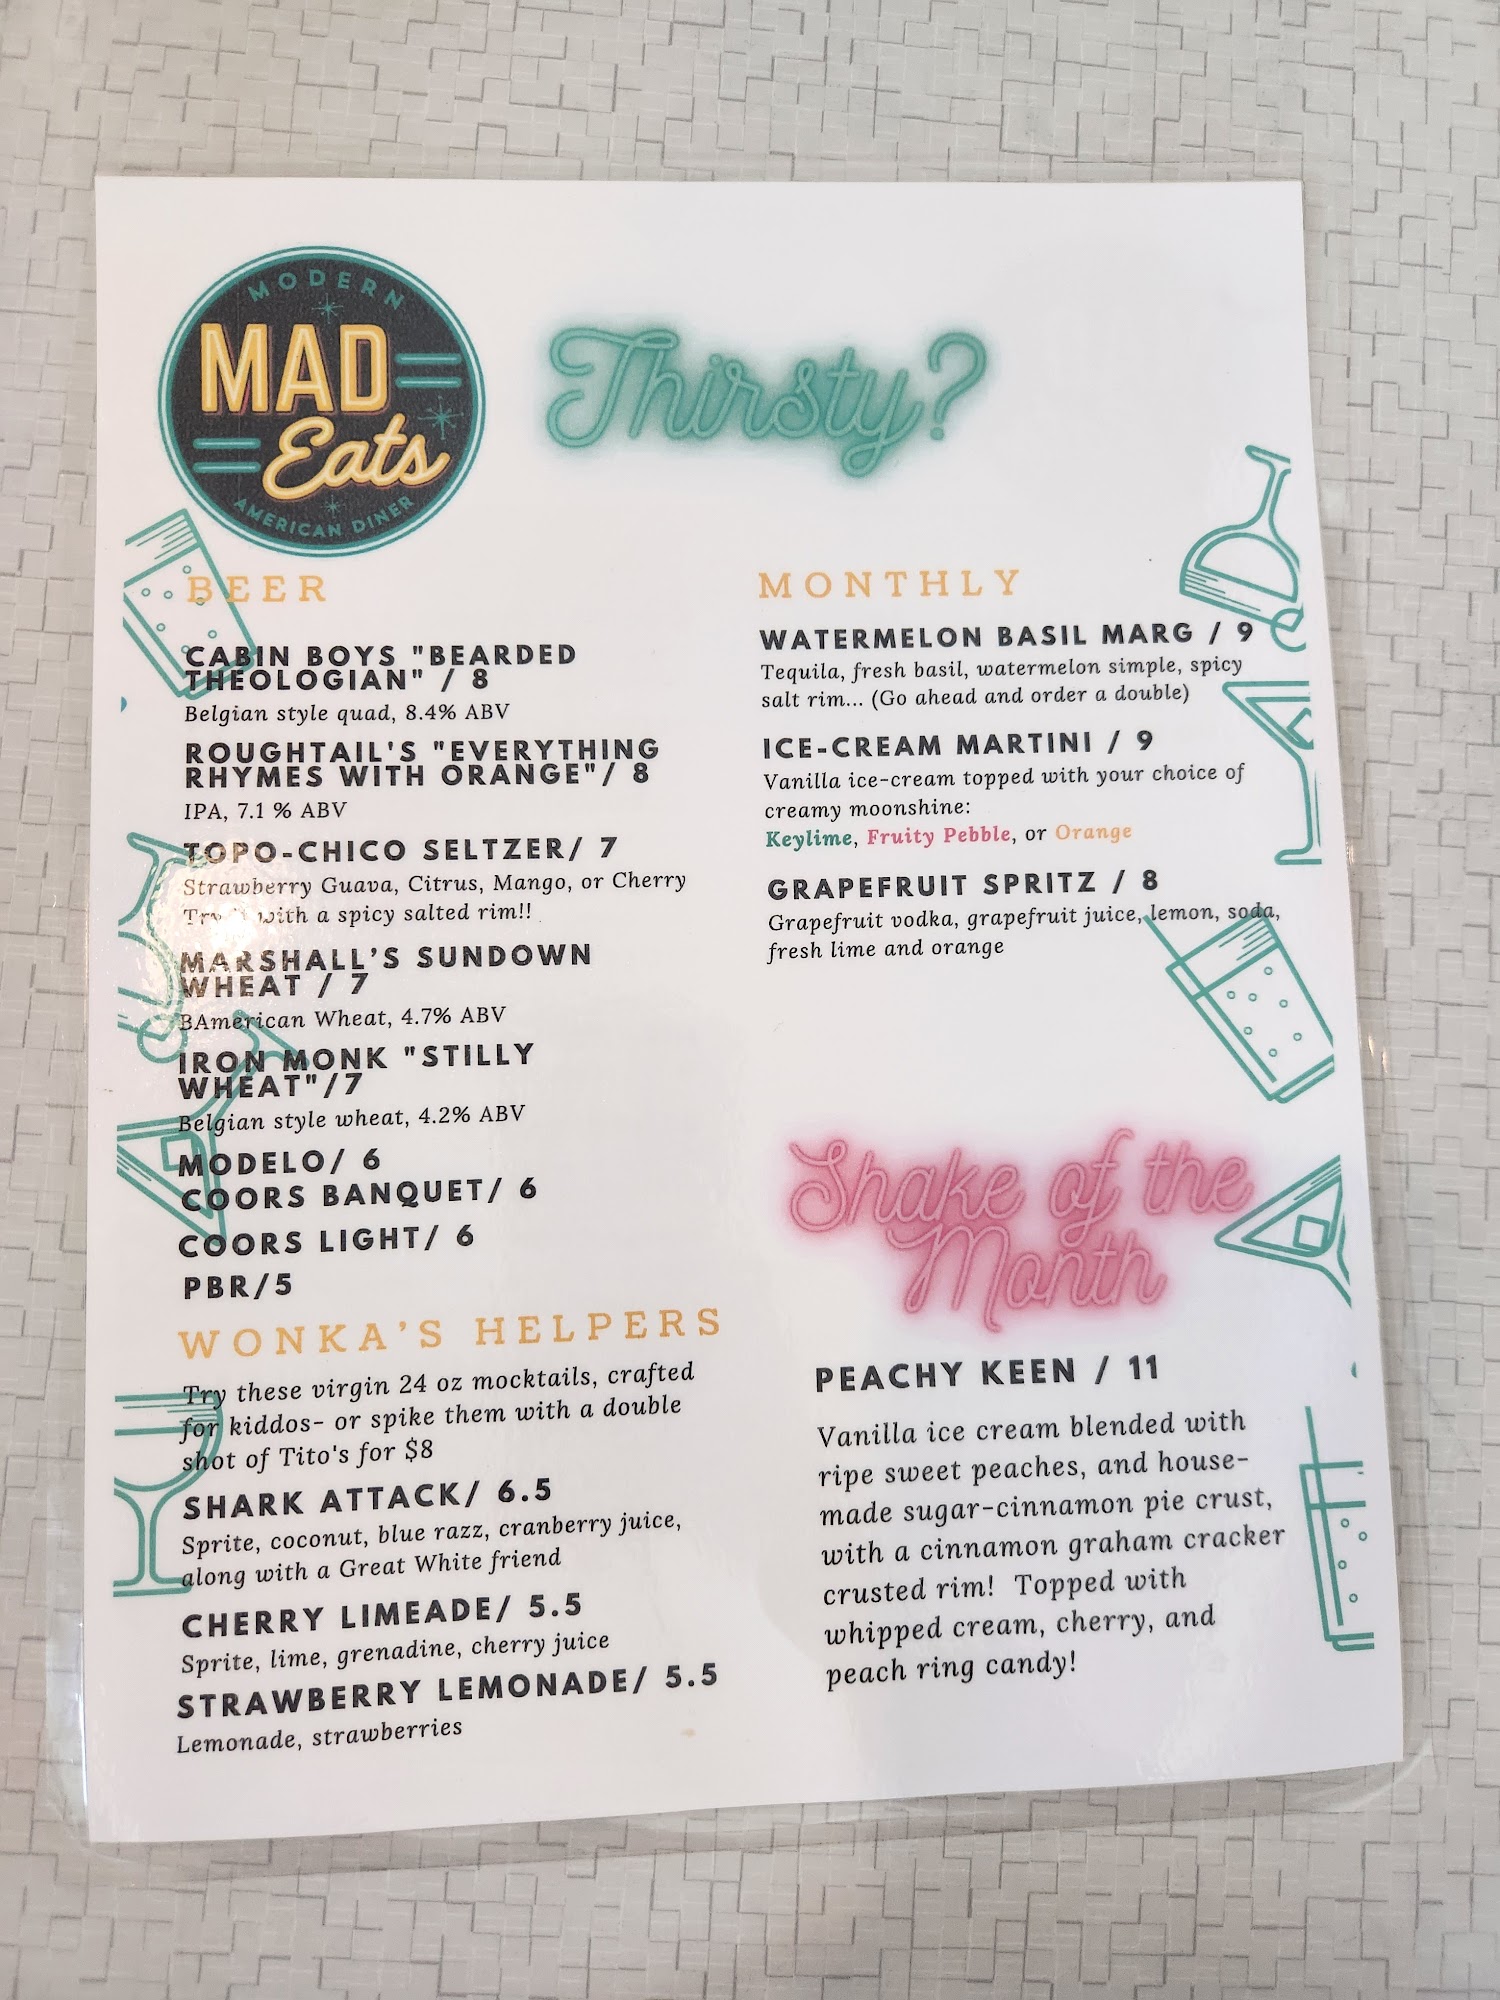 MODERN
MAD
Eats
AMERICAN DINER
Thirsty?
BEER
CABIN BOYS "BEARDED
THEOLOGIAN" / 8
Belgian style quad, 8.4% ABV
ROUGHTAIL'S "EVERYTHING
RHYMES WITH ORANGE"/ 8
IPA, 7.1 % ABV
TOPO-CHICO SELTZER/ 7
Strawberry Guava, Citrus, Mango, or Cherry
Try it with a spicy salted rim!!
MARSHALL'S SUNDOWN
WHEAT / 7
BAmerican Wheat, 4.7% ABV
IRON MONK "STILLY
WHEAT"/7
Belgian style wheat, 4.2% ABV
MODELO/ 6
COORS BANQUET/ 6
COORS LIGHT/ 6
PBR/5
WONKA'S HELPERS
Try these virgin 24 oz mocktails, crafted
for kiddos- or spike them with a double
shot of Tito's for $8
SHARK ATTACK/ 6.5
Sprite, coconut, blue razz, cranberry juice,
along with a Great White friend
CHERRY LIMEADE/ 5.5
Sprite, lime, grenadine, cherry juice
STRAWBERRY LEMONADE/ 5.5
Lemonade, strawberries
MONTHLY
WATERMELON BASIL MARG / 9
Tequila, fresh basil, watermelon simple, spicy
salt rim... (Go ahead and order a double)
ICE-CREAM MARTINI / 9
Vanilla ice-cream topped with your choice of
creamy moonshine:
Keylime, Fruity Pebble, or Orange
GRAPEFRUIT SPRITZ / 8
Grapefruit vodka, grapefruit juice, lemon, soda,
fresh lime and orange
Shake of the
Month
PEACHY KEEN / 11
Vanilla ice cream blended with
ripe sweet peaches, and house-
made sugar-cinnamon pie crust,
with a cinnamon graham cracker
crusted rim!  Topped with
whipped cream, cherry, and
peach ring candy!